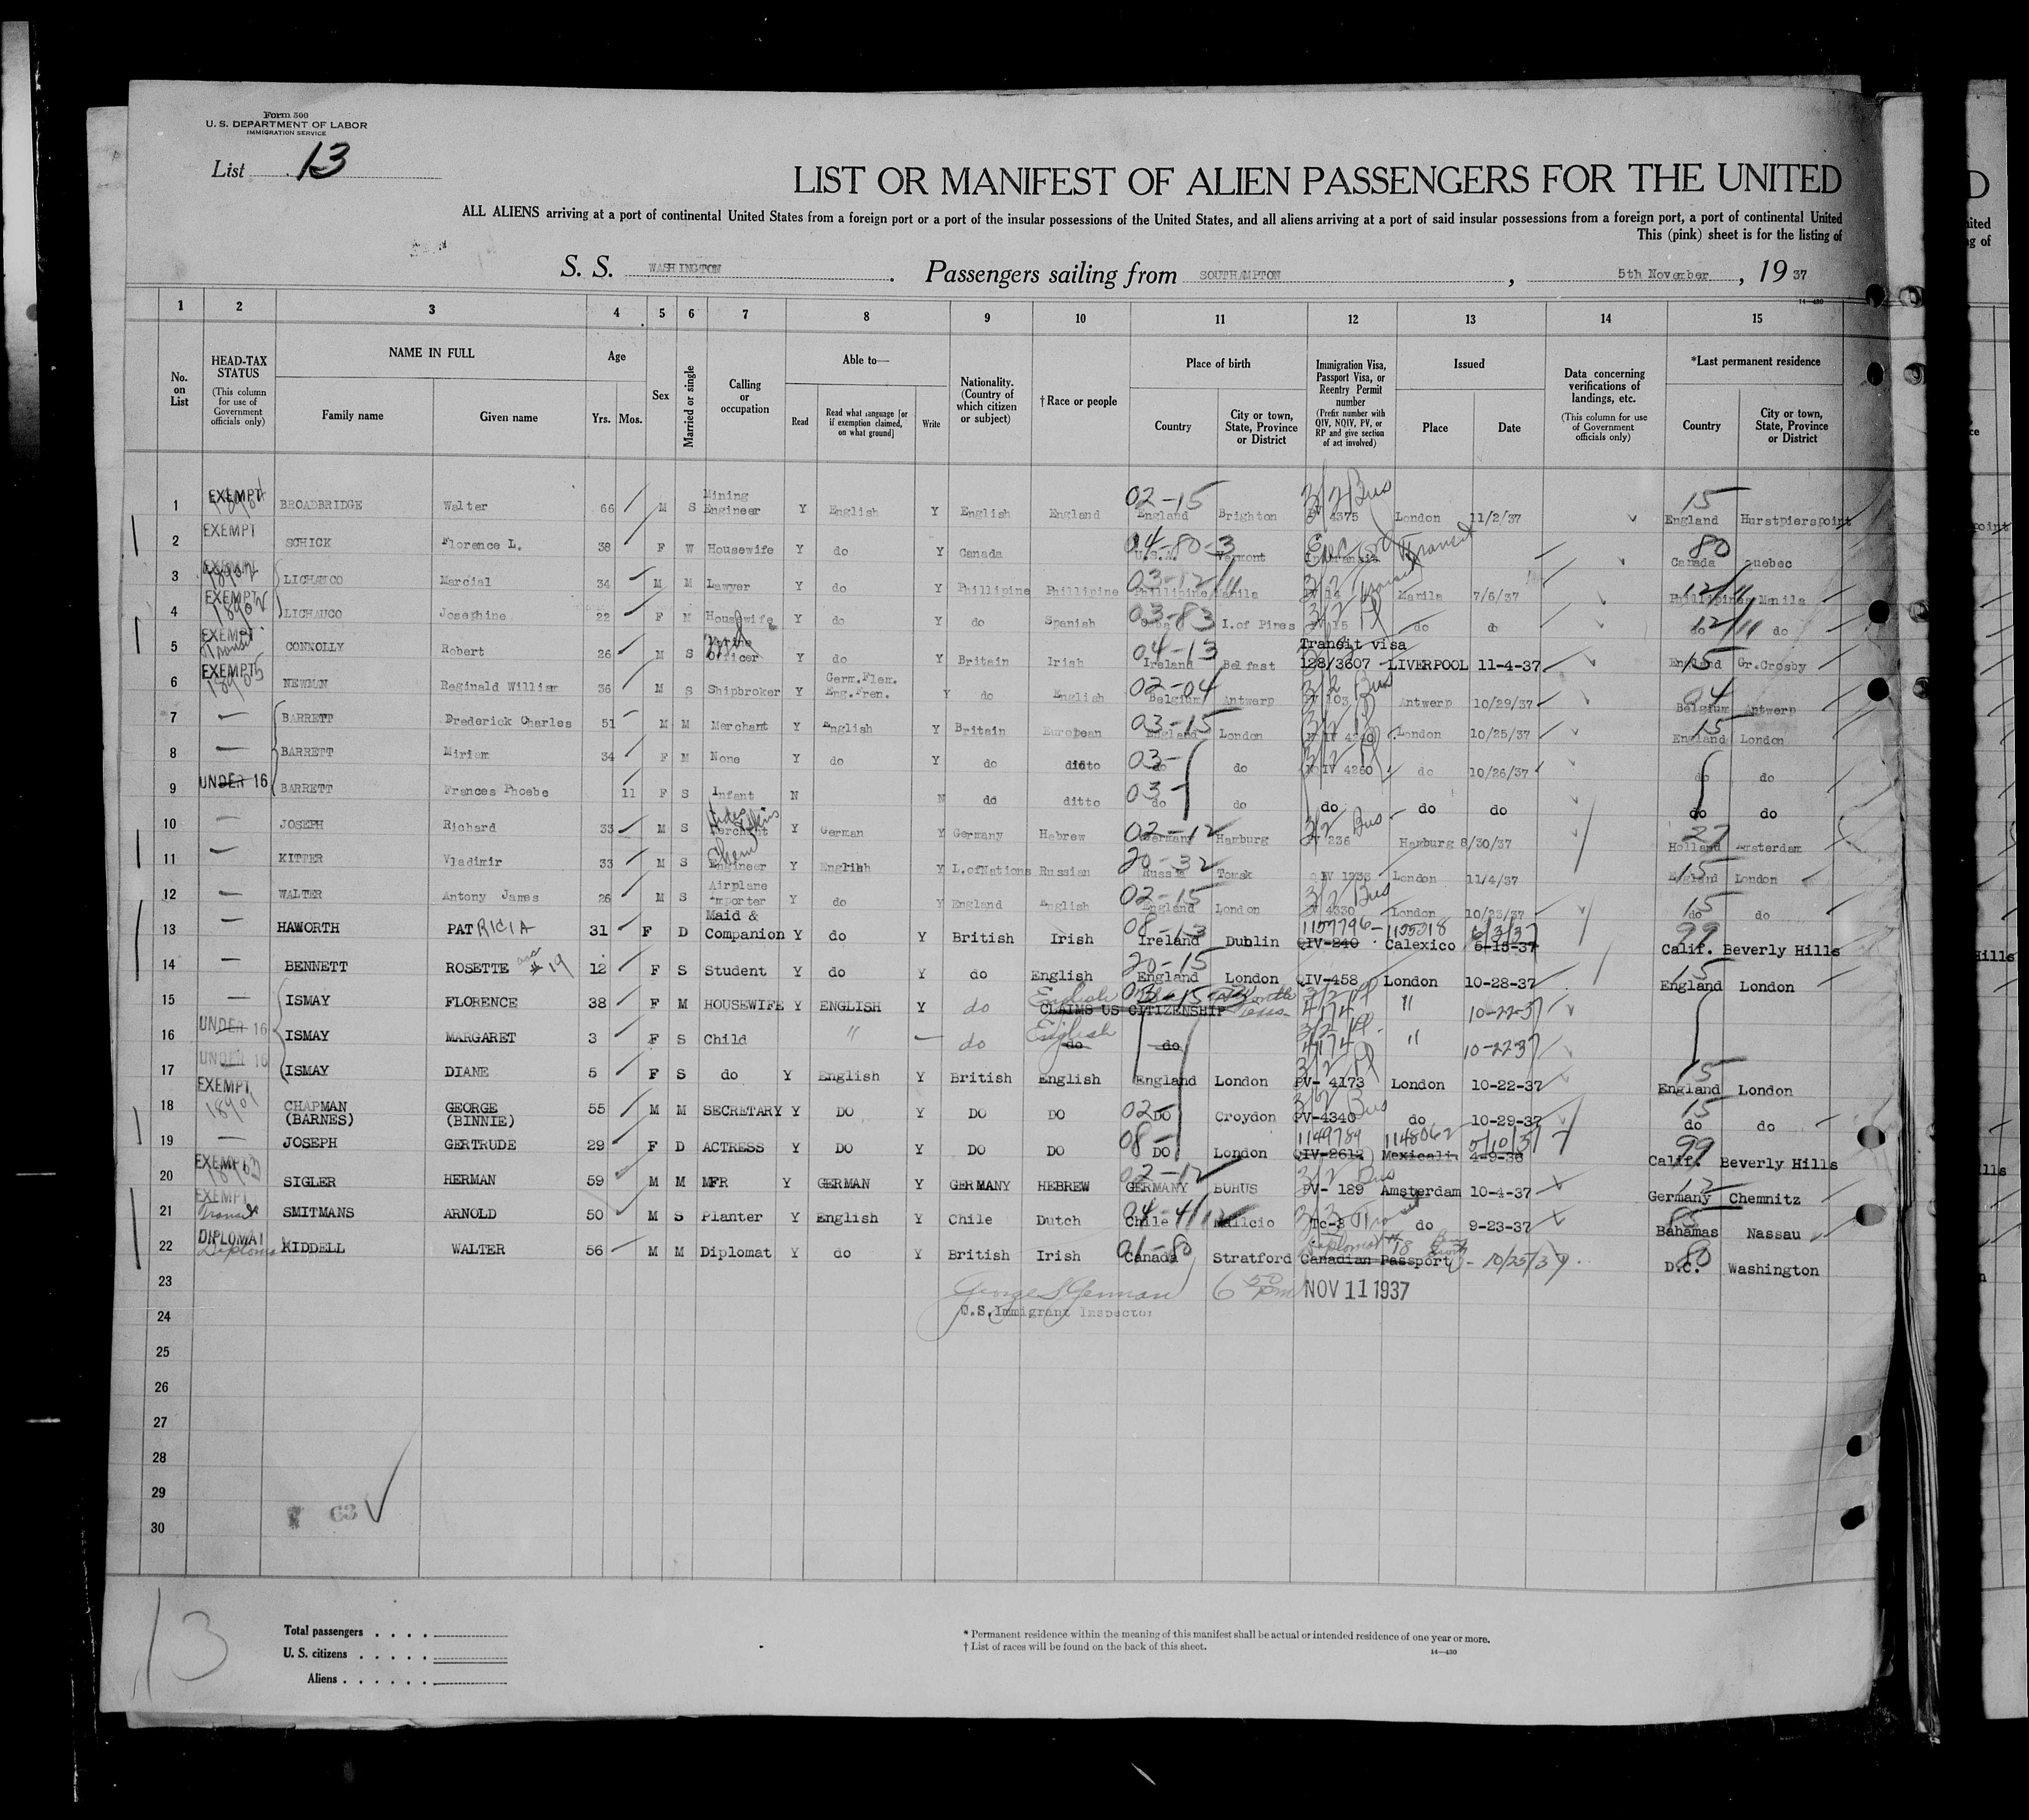 Form 500
U. S. DEPARTMENT OF LABOR
IMMIGRATION SERVICE
List 13
LIST OR MANIFEST OF ALIEN PASSENGERS FOR THE UNITED
ALL ALIENS arriving at a port of continental United States from a foreign port or a port of the insular possessions of the United States, and all aliens arriving at a port of said insular possessions from a foreign port, a port of continental United
This (pink) sheet is for the listing of
S. S. WASHINGTON. Passengers sailing from SOUTHAMPTON, 5th November, 19 37
14—430
1 2 3 4 5 6 7 8 9 10 11 12 13 14 15
No. on List
HEAD-TAX STATUS (This column for use of Government officials only)
NAME IN FULL Family name Given name
Age Yrs. Mos.
Sex
Married or single
Calling or occupation
Able to— Read Read what language [or if exemption claimed, on what ground] Write
Nationality. (Country of which citizen or subject)
†Race or people
Place of birth Country City or town, State, Province or District
Immigration Visa, Passport Visa, or Reentry Permit number (Prefix number with QIV, NQIV, PV, or RP and give section of act involved)
Issued Place Date
Data concerning verifications of landings, etc. (This column for use of Government officials only)
*Last permanent residence Country City or town, State, Province or District
1 EXEMPT BROADBRIDGE Walter 66 M S Mining Engineer Y English Y English England 02-15 England Brighton 3/2 Bus 4375 London 11/2/37 15 England Hurstpierspoint
2 EXEMPT SCHICK Florence L. 38 F W Housewife Y do Y Canada 04-80-3 U.S.A. Vermont Transit 80 Canada Quebec
3 LICHAUCO Marcial 34 M M Lawyer Y do Y Phillipine Phillipine 03-12 Phillipine Manila Manila 7/6/37 12 Phillipines Manila
4 EXEMPT LICHAUCO Josephine 22 F M Housewife Y do Y do Spanish 03-83 I.of Pines do do 12 do do
5 EXEMPT Transit CONNOLLY Robert 26 M S Officer Y do Y Britain Irish 04-13 Ireland Belfast Transit visa 128/3607 LIVERPOOL 11-4-37 15 England Gr.Crosby
6 EXEMPT 18905 NEWMAN Reginald William 36 M S Shipbroker Y Germ.Flem. Eng.Fren. Y do English 02-04 Belgium Antwerp 3/2 Bus 103 Antwerp 10/29/37 04 Belgium Antwerp
7 — BARRETT Frederick Charles 51 M M Merchant Y English Y Britain European 03-15 England London 3/2 Pl London 10/25/37 15 England London
8 — BARRETT Miriam 34 F M None Y do Y do ditto 03- do do 3/2 Pl IV 4260 do 10/26/37 do do
9 UNDER 16 BARRETT Frances Phoebe 11 F S Infant N N do ditto 03- do do do do do do do
10 — JOSEPH Richard 33 M S Merchant Y German Y Germany Hebrew 02-12 Germany Hamburg 3/2 Bus 236 Hamburg 8/30/37 27 Holland Amsterdam
11 — KITTER Vladimir 33 M S Chem Engineer Y English Y L.ofNations Russian 20-32 Russia Tomsk London 11/4/37 15 England London
12 — WALTER Antony James 26 M S Airplane Importer Y do Y England English 02-15 England London 3/2 Bus 4330 London 10/23/37 15 do do
13 — HAWORTH PATRICIA 31 F D Maid & Companion Y do Y British Irish 08-13 Ireland Dublin 1157796 QIV-240 Calexico 6/3/37 6-15-37 99 Calif. Beverly Hills
14 — BENNETT ROSETTE #19 12 F S Student Y do Y do English 20-15 England London QIV-458 London 10-28-37 15 England London
15 — ISMAY FLORENCE 38 F M HOUSEWIFE Y ENGLISH Y do English CLAIMS US CITIZENSHIP 3/2 Pl 4174 " 10-22-37
16 UNDER 16 ISMAY MARGARET 3 F S Child " — do English do do 3/2 Pl 4174 " 10-22 37
17 UNDER 16 ISMAY DIANE 5 F S do Y English Y British English England London 3/2 Pl PV- 4173 London 10-22-37 15 England London
18 EXEMPT 18901 CHAPMAN (BARNES) GEORGE (BINNIE) 55 M M SECRETARY Y DO Y DO DO 02- DO Croydon 3/2 Bus PV-4340 do 10-29-37 15 do do
19 — JOSEPH GERTRUDE 29 F D ACTRESS Y DO Y DO DO 08- DO London 1149789 QIV-2612 1148062 Mexicali 5/10/37 4-9-36 99 Calif. Beverly Hills
20 EXEMPT 18903 SIGLER HERMAN 59 M M MFR Y GERMAN Y GERMANY HEBREW 02-12 GERMANY BUHUS 3/2 Bus PV- 189 Amsterdam 10-4-37 12 Germany Chemnitz
21 EXEMPT Transit SMITMANS ARNOLD 50 M S Planter Y English Y Chile Dutch 04-41 Chile 3/3 Transit TC-3 do 9-23-37 83 Bahamas Nassau
22 DIPLOMAT Diplomat KIDDELL WALTER 56 M M Diplomat Y do Y British Irish 01-80 Canada Stratford Diplomat Canadian Passport 10/25/37 80 D.C. Washington
23 George S German 6 50 pm NOV 11 1937
24 U.S.Immigrant Inspector
25
26
27
28
29 63
30
13
Total passengers . . . .
U. S. citizens . . . . .
Aliens . . . . . .
* Permanent residence within the meaning of this manifest shall be actual or intended residence of one year or more.
† List of races will be found on the back of this sheet.
14—430